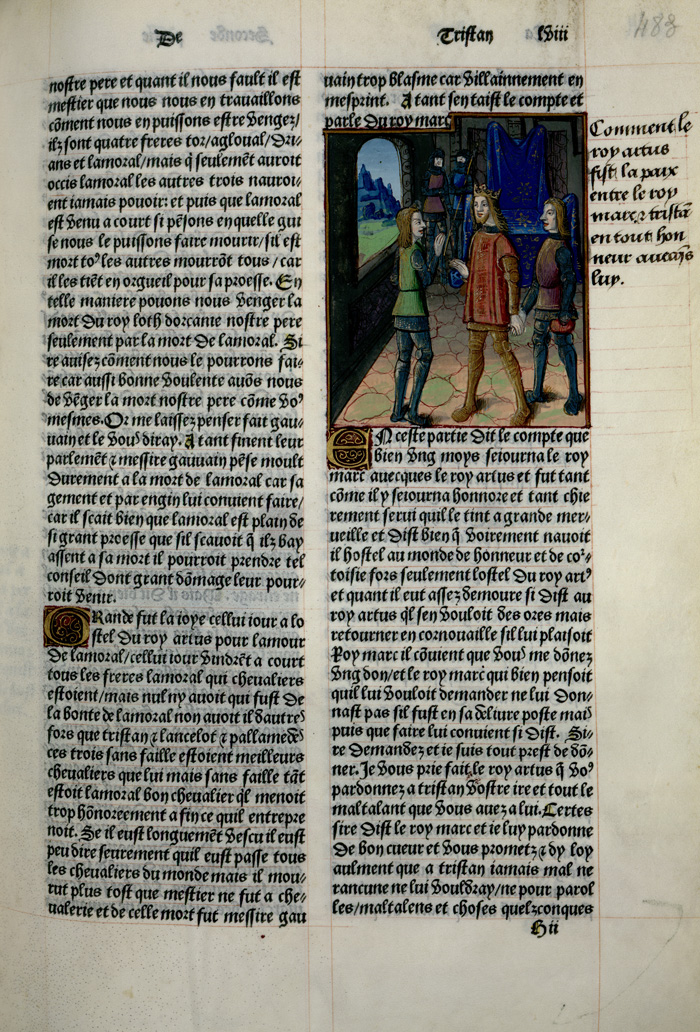 De
Tristan lviii
483
nostre pere et quant il nous fault il est
mestier que nous nous en travaillons
cõment nous en puissons estre vengez/
ilz sont quatre freres tor/agloual/dri-
ans et lamoral/mais q̃ seulemẽt auroit
occis lamoral les autres trois nauroi-
ent iamais pouoir: et puis que lamoral
est venu a court si pẽsons en quelle gui
se nous le puissons faire mourir/sil est
mort toꝰ les autres mourrõt tous/car
il les tiẽt en orgueil pour sa proesse. En
telle maniere pouons nous venger la
mort du roy loth dorcanie nostre pere
seulement par la mort de lamoral. Si
re auisez cõment nous le pourrons fai-
re car aussi bonne voulente auõs nous
de vẽger la mort nostre pere cõme voꝰ
mesmes. Or me laissez penser fait gau-
uain et le vouꝰ diray. A tant finent leur
parlemẽt ⁊ messire gauuain pẽse moult
durement a la mort de lamoral car sa
gement et par engin lui conuient faire/
car il scait bien que lamoral est plain de
si grant proesse que sil scauoit q̃ ilz bay
assent a sa mort il pourroit prendre tel
conseil dont grant dõmage leur pour-
roit venir.
Grande fut la ioye cellui iour a lo
stel du roy artus pour lamour
de lamoral/cellui iour vindrẽt a court
tous les freres lamoral qui cheualiers
estoient/mais nul ny auoit qui fust de
la bonte de lamoral non auoit il dautreꝰ
fors que tristan ⁊ lancelot ⁊ pallamedeꝰ
ces trois sans faille estoient meilleurs
cheualiers que lui mais sans faille tãt
estoit lamoral bon cheualier q̃l menoit
trop hõnoreement a fin ce quil entrepre
noit. Se il eust longuemẽt vescu il eust
peu dire seurement quil eust passe tous
les cheualiers du monde mais il mou-
rut plus tost que mestier ne fut a che-
ualerie et de celle mort fut messire gau
uain trop blasme car villainnement en
mesprint. A tant sen taist le compte et
parle du roy marc
Comment le
roy artus
fist la paix
entre le roy
marc ⁊ tristã
en tout hon
neur auecq̃s
luy.
En ceste partie dit le compte que
bien vng moys seiourna le roy
marc auecques le roy artus et fut tant
cõme il y seiourna honnore et tant chie
rement serui quil le tint a grande mer-
ueille et dist bien q̃ voirement nauoit
il hostel au monde de honneur et de cor-
toisie fors seulement lostel du roy artꝰ
et quant il eut assez demoure si dist au
roy artus q̃l sen vouloit des ores mais
retourner en cornouaille sil lui plaisoit
Roy marc il cõuient que vouꝰ me dõnez
vng don/et le roy marc qui bien pensoit
quil lui vouloit demander ne lui don-
nast pas sil fust en sa deliure poste maiꝰ
puis que faire lui conuient si dist. Si-
re demandez et ie suis tout prest de dõ-
ner. Je vous prie fait le roy artus q̃ voꝰ
pardonnez a tristan vostre ire et tout le
maltalant que vous auez a lui. Certes
sire dist le roy marc et ie luy pardonne
de bon cueur et vous prometz ⁊ dy loy
aulment que a tristan iamais mal ne
rancune ne lui vouldray/ne pour parol
les/maltalens et choses quelzconques
Hii